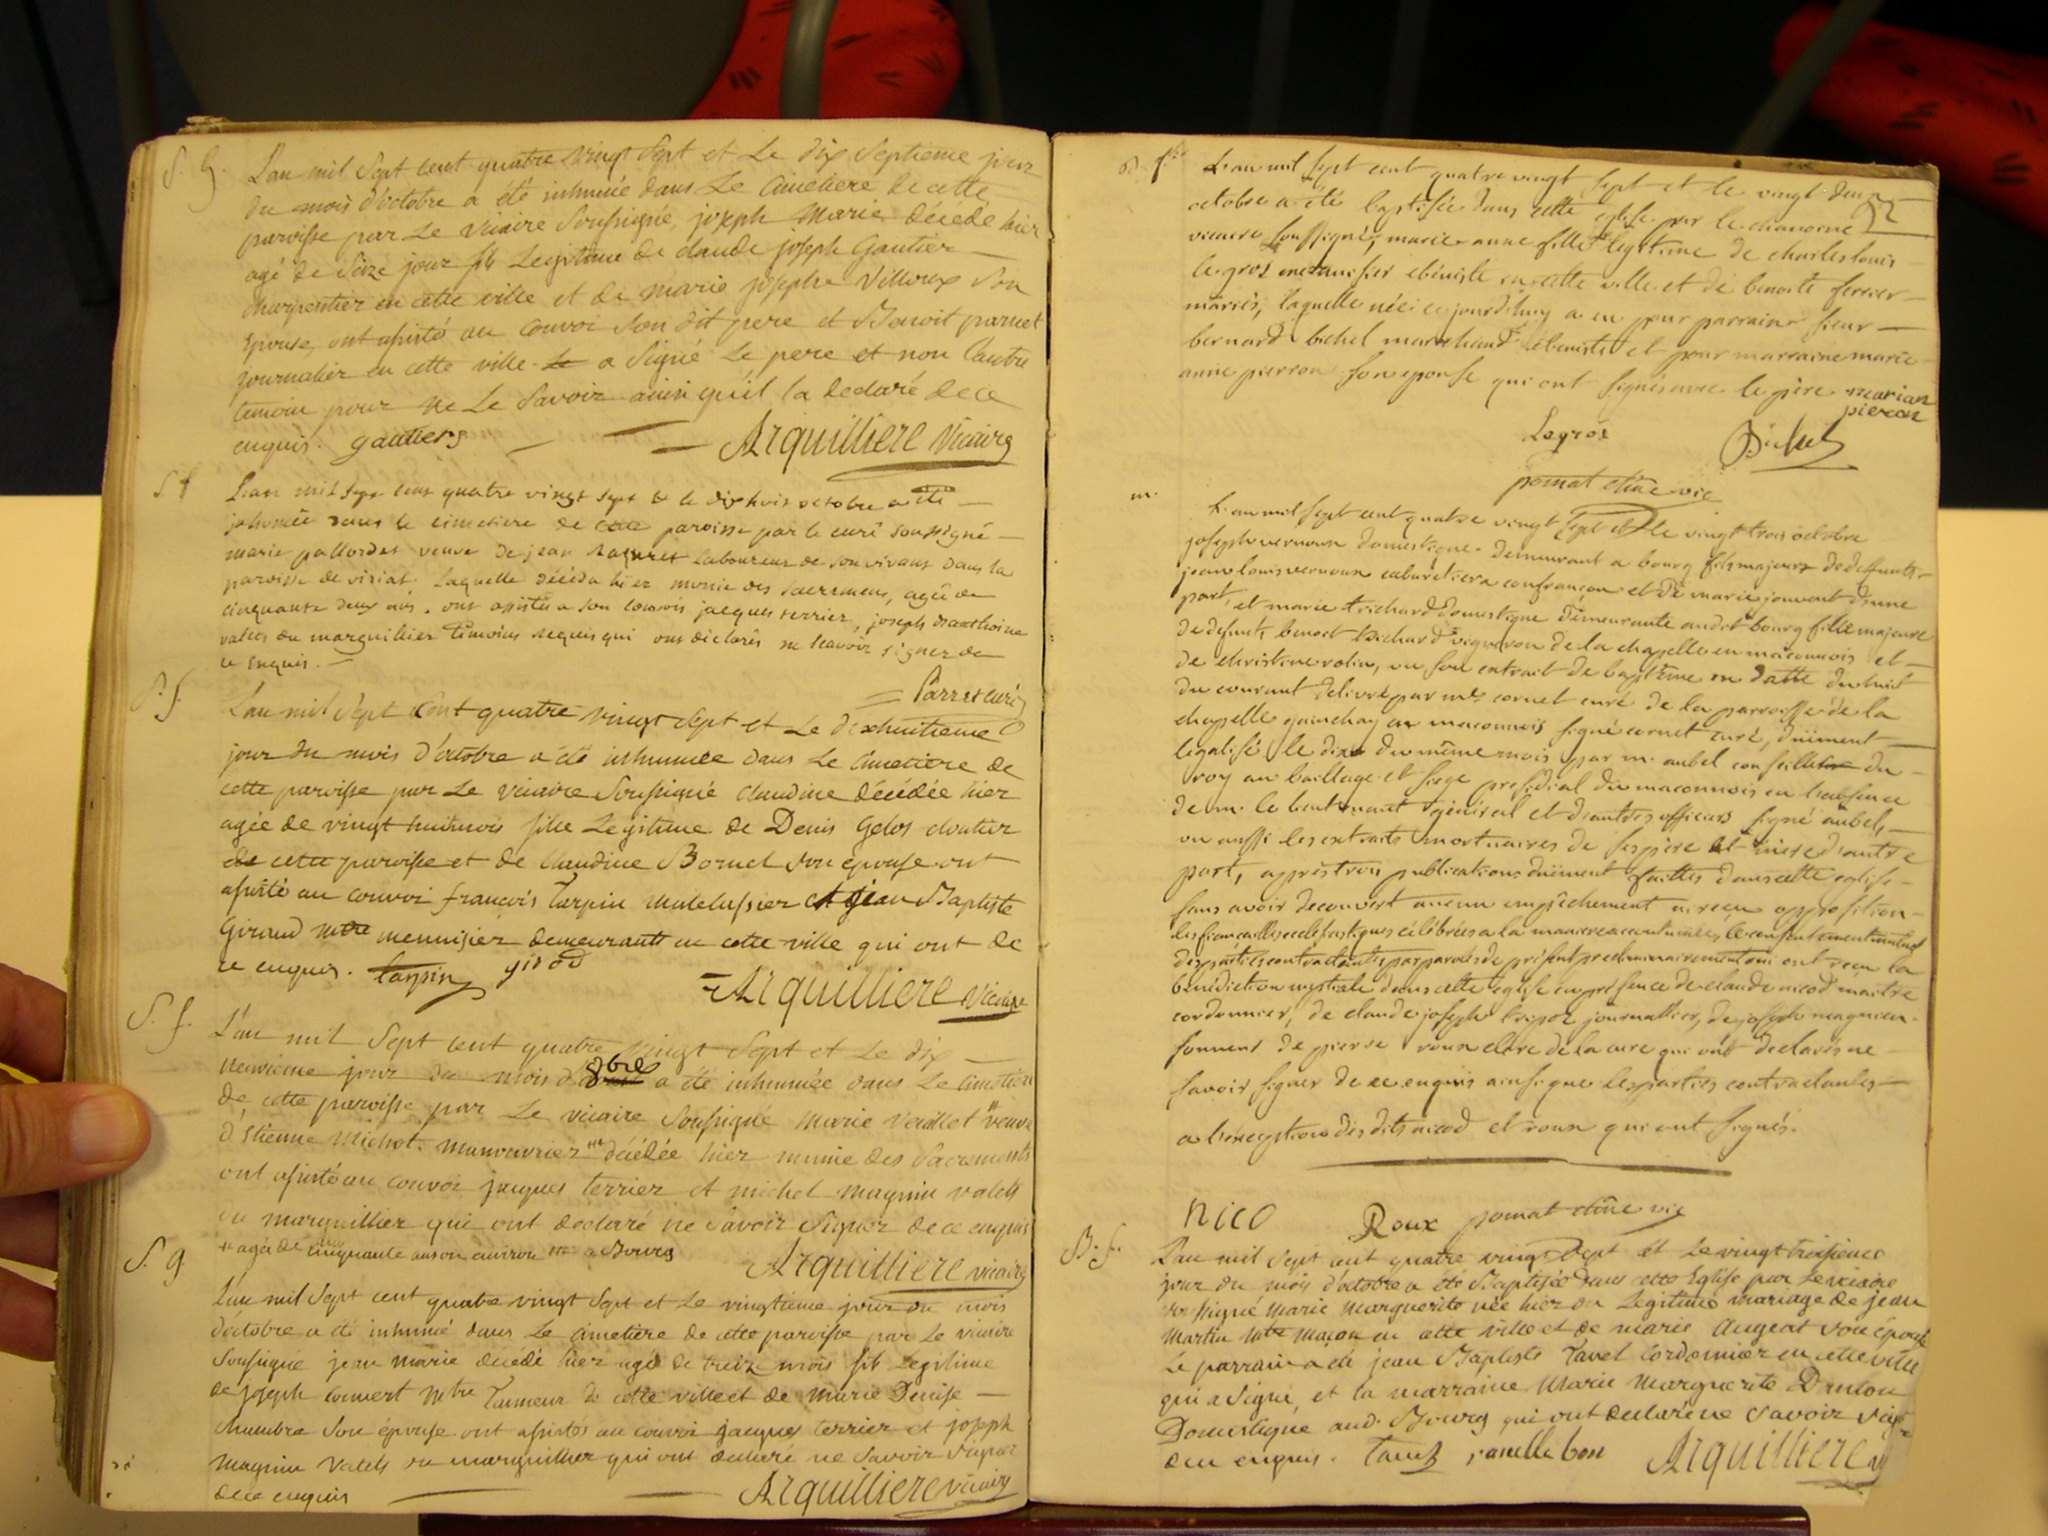 S. G.
L'an mil sept cent quatre vingt sept et Le dix septieme jour
du mois d'octobre a été inhumée dans Le Cimetiere de cette
paroisse par Le vicaire soussigné, joseph Marie décédé hier
agé de seize jour fils Legitime de claude joseph Gautier
charpentier en cette ville et de marie josephe Villoux son
Epouse, ont assisté au convoi son dit pere et Benoit parnet
journalier en cette ville a signé Le pere et non l'autre
temoin pour ne Le savoir ainsi qu'il l'a declaré de ce
enquis. gautiers Arquilliere vicaire
S f
L'an mil sept cent quatre vingt sept & le dix huit octobre a été
inhumée dans le cimetiere de cette paroisse par le curé soussigné
marie pallordet veuve de jean laboureur de son vivant dans la
paroisse de viriat. laquelle décéda hier munie des sacremens, agée de
cinquante deux ans. ont assistés a son convois jacques terrier, joseph
valets du marguillier témoins requis qui ont déclarés ne scavoir signer de
ce enquis.
Parret curé
S. f.
L'an mil sept cent quatre vingt sept et Le dixhuitieme
jour du mois d'octobre a été inhumée dans Le Cimetiere de
cette paroisse par Le vicaire soussigné claudine décédée hier
agée de vingt huit mois fille Legitime de Denis Gelos cloutier
de cette paroisse et de Claudine Bornel son epouse ont
assisté au convoi françois Tarpin matelassier et jean Baptiste
Giroud mtre menuisier demeurants en cette ville qui ont de
ce enquis. tarpin girod
Arquilliere vicaire
S. f.
L'an mil sept cent quatre vingt sept et Le dix
neuvieme jour du mois d'8bre a été inhumée dans Le Cimetiere
de cette paroisse par Le vicaire soussigné Marie veuve
d'Etienne Michot manouvrier décédée hier munie des sacrements
ont assisté au convoi jacques terrier et michel magnin valets
du marguillier qui ont declaré ne savoir signer de ce enquis
agée de cinquante ans ou environ a Bourg
Arquilliere vicaire
S. g
L'an mil sept cent quatre vingt sept et Le vingtieme jour du mois
d'octobre a été inhumé dans Le cimetiere de cette paroisse par Le vicaire
soussigné jean marie decedé hier agé de treize mois fils Legitime
de joseph convert mtre Tanneur de cette ville et de Marie Denise
chambre son épouse ont assistés au convoi jacques terrier et joseph
magnin valets du marguillier qui ont declaré ne savoir signer
de ce enquis
Arquilliere vicaire
L'an mil sept cent quatre vingt sept et le vingt deux
octobre a été baptisée dans cette eglise par le chanoine
vicaire soussigné, marie anne fille legitime de charles louis
le gros menuisier ebéniste en cette ville et de benoite ferrier
mariés, laquelle née cejourdhuy a eu pour parrain sieur
bernard bichel marchand ebeniste et pour marraine marie
anne pierron son epouse qui ont signés avec le père marian
pieron
Legros Bichel
pomat chne vic
m.
L'an mil sept cent quatre vingt sept et le vingt trois octobre
joseph vernoux domestique demeurant a bourg fils majeur de deffunts
jean louis vernoux cabaretier a confrançon et de marie jouvent d'une
part, et marie trichard domestique demeurante audit bourg fille majeure
de defunts benoit trichard vigneron de la chapelle en maconnois et
de christine rolin, vu son extrait de baptême en datte du huit
du courant delivré par mre cornet curé de la paroisse de la
chapelle guinchay en maconnois signé cornet curé, düement
legalisé le dix du même mois par m. aubel conseiller du
roy au baillage et siege presidial du maconnois en l'absence
de m. le lieutenant général et d'autres officiers signé aubel,
vu aussi les extraits mortuaires de ses père et mere d'autre
part, après trois publications düement faittes dans cette eglise
sans avoir decouvert aucun empêchement ni reçu opposition
les fiançailles ecclésiastiques célébrées a la maniere accoutumée, le consentement mutuel
des parties contractantes par paroles de présent ont recu la
bénédiction nuptiale dans cette eglise en présence de claude nicod maitre
cordonnier, de claude joseph journallier, de joseph magnien
sonneur de pierre roux clerc de la cure qui ont declarés ne
savoir signer de ce enquis ainsi que les parties contractantes
a l'exception des dits nicod et roux qui ont signés.
nico Roux pomat chne vic
B. f.
L'an mil sept cent quatre vingt sept et Le vingt troisieme
jour du mois d'octobre a été Baptisée dans cette Eglise par Le vicaire
soussigné Marie Marguerite née hier du Legitime mariage de jean
Martin mtre Maçon en cette ville et de marie Augerat son épouse
Le parrain a été jean Baptiste Tavel cordonnier en cette ville
qui a signé, et la marraine Marie Marguerite
Domestique aud. Bourg qui ont declaré ne savoir
de ce enquis. Arquilliere